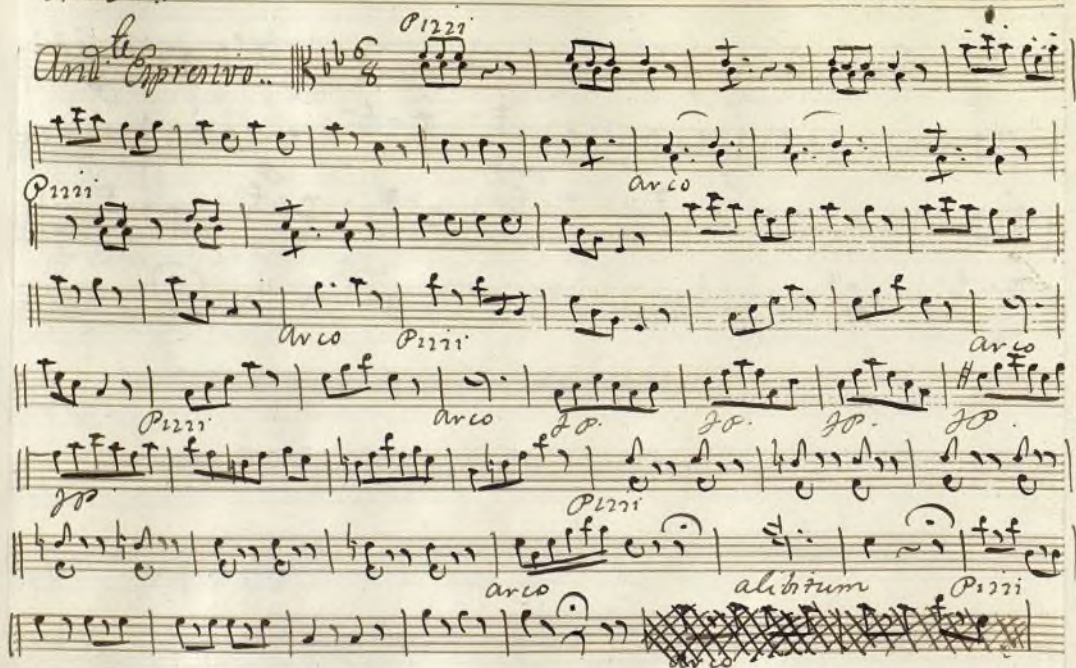 Pizzi
Andte Expresivo..
6
8
arco
Pizzi
arco Pizzi arco
Pizzi arco fP. fP. fP. fP
fP Pizzi
arco alibitum Pizzi
arco